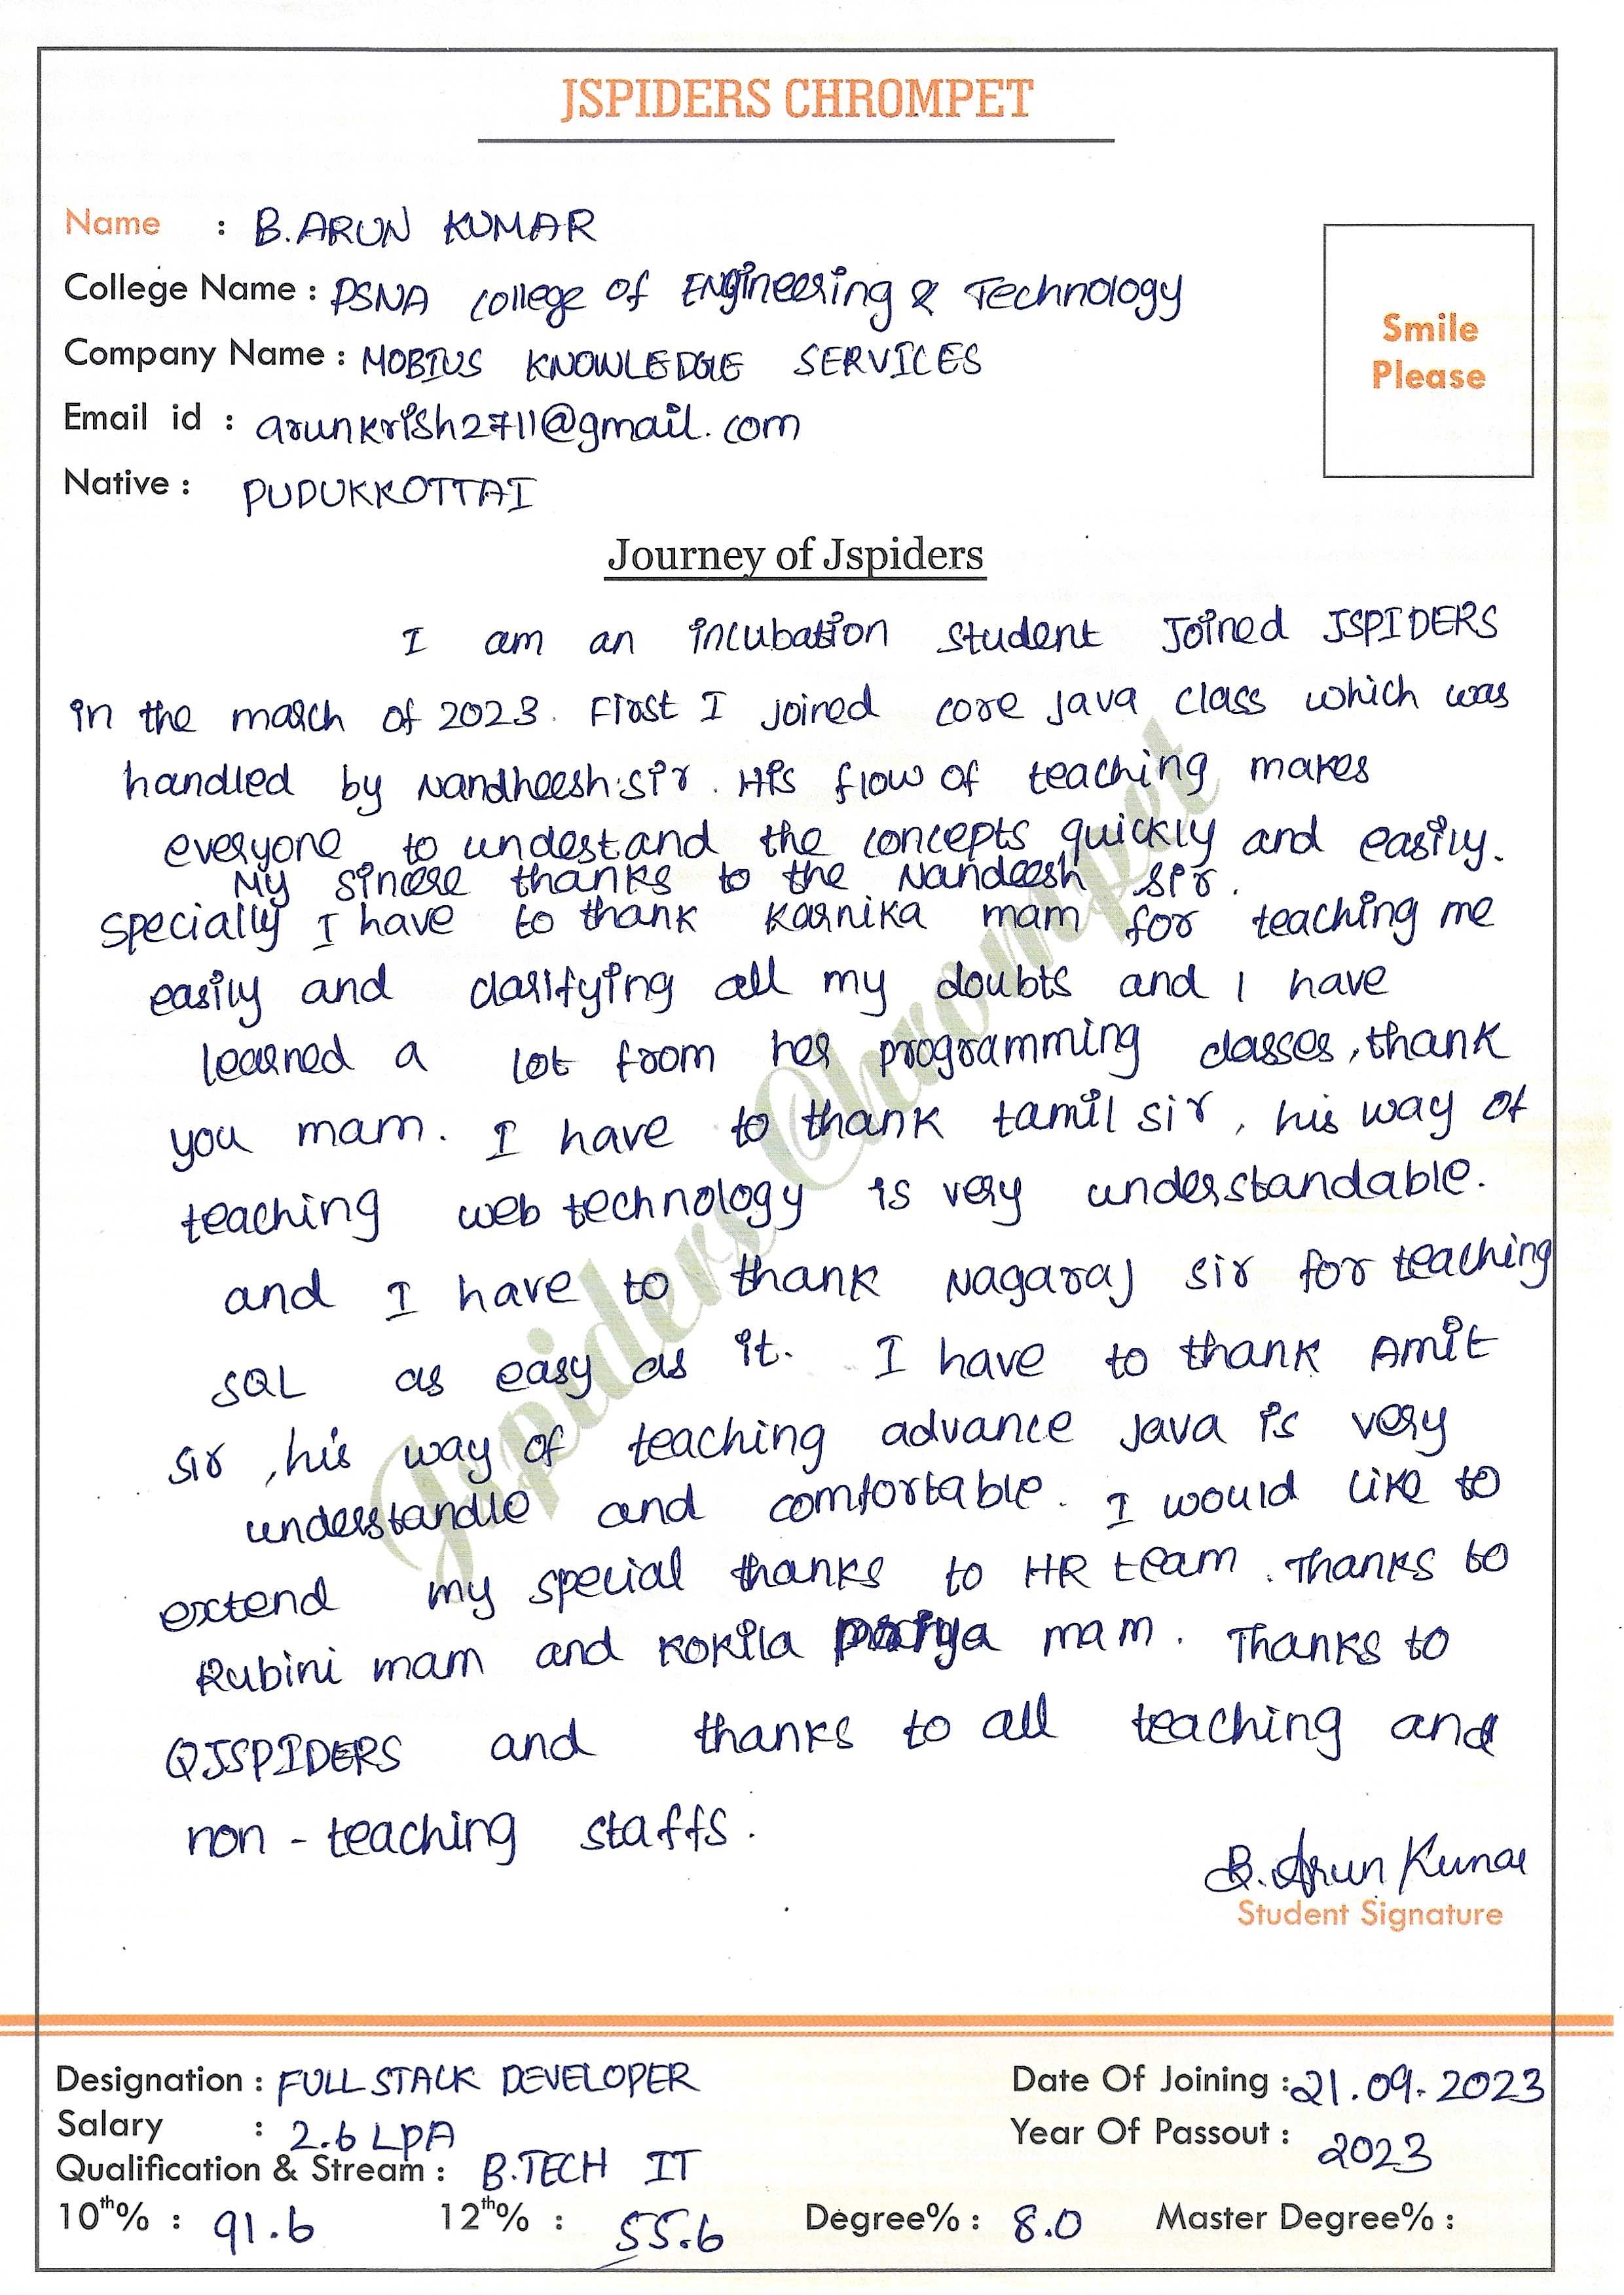 JSPIDERS CHROMPET
Name : B.ARUN KUMAR
College Name : PSNA college of Engineering & Technology
Company Name : MOBIUS KNOWLEDGE SERVICES
Email id : arunkrish2711@gmail.com
Native : PUDUKKOTTAI
Smile
Please
Journey of Jspiders
I am an incubation student Joined JSPIDERS
in the march of 2023. First I joined core java class which was
handled by Nandheesh sir. His flow of teaching makes
everyone to undestand the concepts quickly and easily.
My sincere thanks to the Nandeesh sir.
specially I have to thank Karnika mam for teaching me
easily and clarifying all my doubts and I have
learned a lot from her programming classes, thank
you mam. I have to thank tamil sir, his way of
teaching web technology is very understandable.
and I have to thank Nagaraj sir for teaching
SQL as easy as it. I have to thank Amit
sir, his way of teaching advance java is very
understandle and comfortable. I would like to
extend my special thanks to HR team. Thanks to
Rubini mam and Kokila mam. Thanks to
QJSPIDERS and thanks to all teaching and
non - teaching staffs.
B. Arun Kumar
Student Signature
Jspiders Chrompet
Designation : FULL STACK DEVELOPER Date Of Joining : 21.09.2023
Salary : 2.6 LPA Year Of Passout : 2023
Qualification & Stream : B.TECH IT
10th% : 91.6 12th% : 55.6 Degree% : 8.0 Master Degree% :